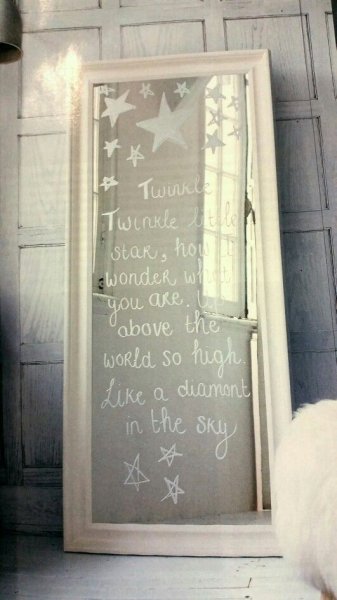 Twinkle
Twinkle little
star, how I
wonder what
you are. Up
above the
world so high.
Like a diamont
in the sky